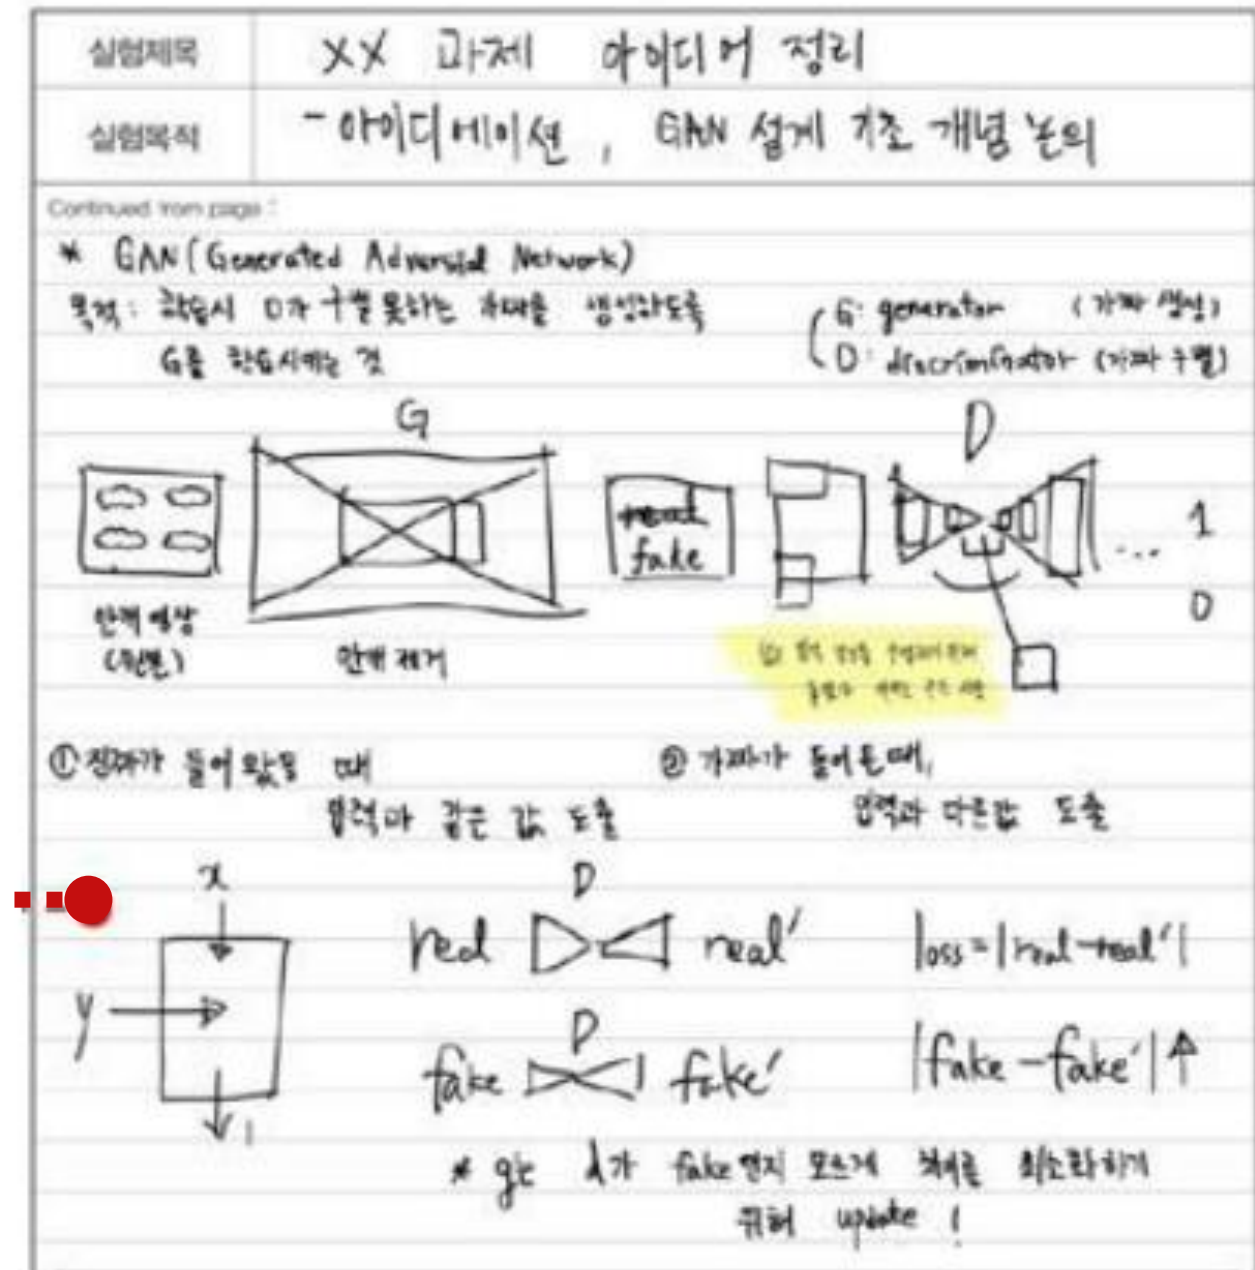 실험제목 XX 과제 아이디어 정리
실험목적 - 아이디에이션, GAN 설계 기초 개념 논의
Continued from page :
* GAN (Generated Adversial Network)
목적: 학습시 D가 구별 못하는 가짜를 생성하도록
G를 학습시키는 것
G: generator (가짜 생성)
D: discriminator (가짜 구별)
G
D
real
fake
1
...
0
안개 영상
(원본)
안개 제거
① 진짜가 들어왔을 때
입력과 같은 값 도출
② 가짜가 들어온때,
입력과 다른값 도출
x
y
1
D
real real′ loss=|real-real′|
D
fake fake′ |fake-fake′|↑
* g는 d가 fake인지 모르게 차이를 최소화하기
위해 update !